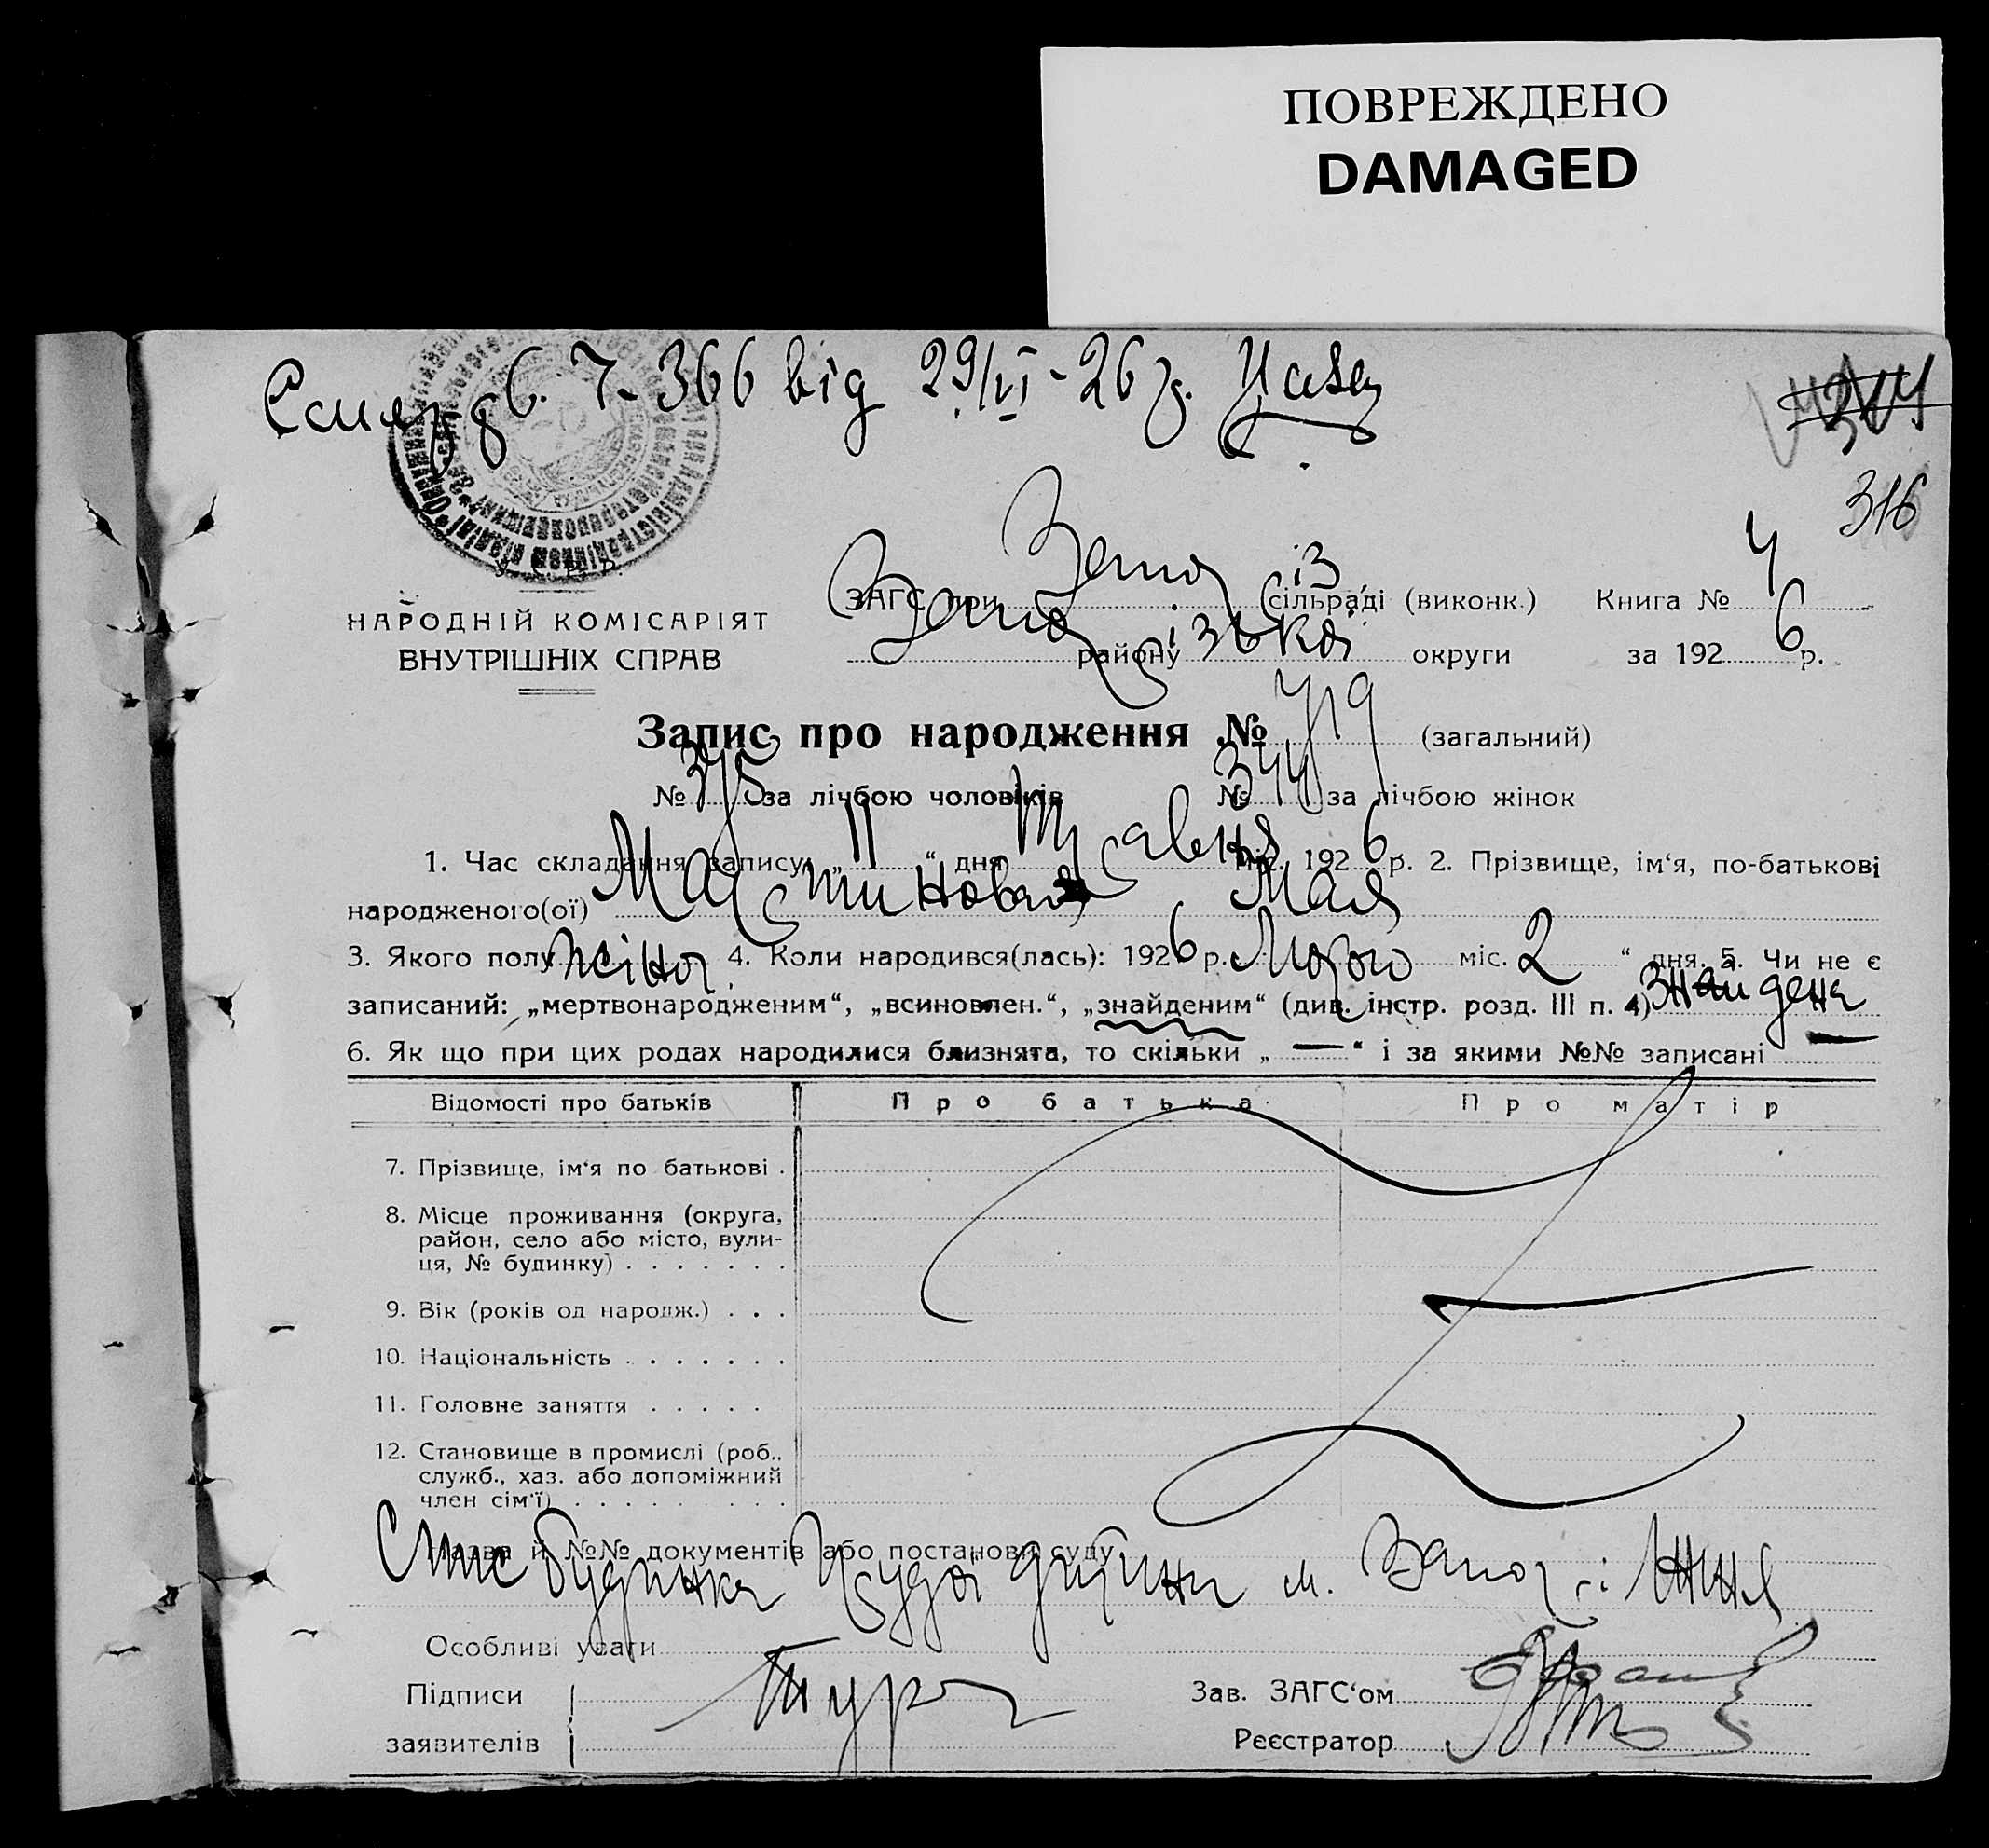 ПОВРЕЖДЕНО
DAMAGED
366 від 29/VI-26 р.
314
316
НАРОДНІЙ КОМІСАРІЯТ
ВНУТРІШНІХ СПРАВ
ЗАГС при Запоріз сільраді (виконк.) Книга № 4
Запорізької району округи за 1926 р.
Запис про народження № 719 (загальний)
№ 375 за лічбою чоловіків № 344 за лічбою жінок
1. Час складання запису „11“ дня Травня міс. 1926 р. 2. Прізвище, ім‘я, по-батькові
народженого(ої) Мартинова Мая
3. Якого полу жіноч 4. Коли народився(лась): 1926 р. Лютого міс. 2 “ дня. 5. Чи не є
записаний: „мертвонародженим“, „всиновлен.“, „знайденим“ (див. інстр. розд. III п. 4) Знайдена
6. Як що при цих родах народилися близнята, то скільки „ — “ і за якими №№ записані —
Відомості про батьків Про батька Про матір
7. Прізвище, ім‘я по батькові .
8. Місце проживання (округа,
район, село або місто, вули-
ця, № будинку) . . . . . . .
9. Вік (років од народж.) . . .
10. Національність . . . . . . .
11. Головне заняття . . . . .
12. Становище в промислі (роб.,
служб., хаз. або допоміжний
член сім‘ї) . . . . . . . . .
Назва й №№ документів або постанови суду
будинка дитини м. Запоріжжя
Особливі уваги
Підписи
заявителів
Зав. ЗАГС‘ом
Реєстратор